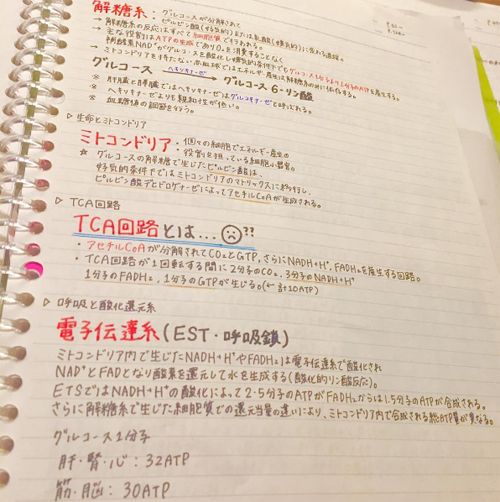 解糖系：グルコースが分解されて
ピルビン酸(好気的)または乳酸(嫌気的)に至る過程。
→ 解糖系の反応はすべて細胞質で行われる。
主な役割はATPの生成でありO₂を消費することなく
補酵素NAD⁺がグルコースを酸化し嫌気的条件下でもグルコース1分子より2分子のATPを産生する。
→ ミトコンドリアを持たない赤血球ではエネルギー産生は解糖系のみに依存する。
グルコース ヘキソキナーゼ→ グルコース6-リン酸
※ 肝臓と膵臓ではヘキソキナーゼはグルコキナーゼと呼ばれる。
※ ヘキソキナーゼよりも親和性が低い。
※ 血糖値の調節を行う。
▷ 生命とミトコンドリア
ミトコンドリア：個々の細胞でエネルギー産生の
役割を担っている細胞小器官。
☆ グルコースの解糖で生じたピルビン酸は、
好気的条件下ではミトコンドリアのマトリックスに移行し、
ピルビン酸デヒドロゲナーゼによってアセチルCoAが生成される。
▷ TCA回路
TCA回路とは…??
・アセチルCoAが分解されてCO₂とGTP、さらにNADH+H⁺、FADH₂を産生する回路。
・TCA回路が1回転する間に2分子のCO₂、3分子のNADH+H⁺
1分子のFADH₂、1分子のGTPが生じる。(←計10ATP)
▷ 呼吸と酸化還元系
電子伝達系(EST・呼吸鎖)
ミトコンドリア内で生じたNADH+H⁺やFADH₂は電子伝達系で酸化され
NAD⁺とFADとなり酸素を還元して水を生成する(酸化的リン酸反応)。
ETSではNADH+H⁺の酸化によって2.5分子のATPがFADH₂からは1.5分子のATPが合成される。
さらに解糖系で生じた細胞質での還元当量の違いにより、ミトコンドリア内で合成される総ATP量が異なる。
グルコース1分子
肝・腎・心：32ATP
筋・脳：30ATP